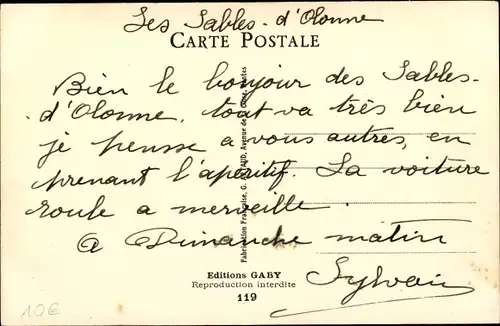 Les Sables-d'Olonne
CARTE POSTALE
Bien le bonjour des Sables-
d'Olonne, tout va très bien
je pensse a vous autres, en
prenant l'apéritif. La voiture
roule a merveille.
a Dimanche matin
Sylvain
Fabrication Française, G. Avenue de la Gare,
Editions GABY
Reproduction interdite
119
10€